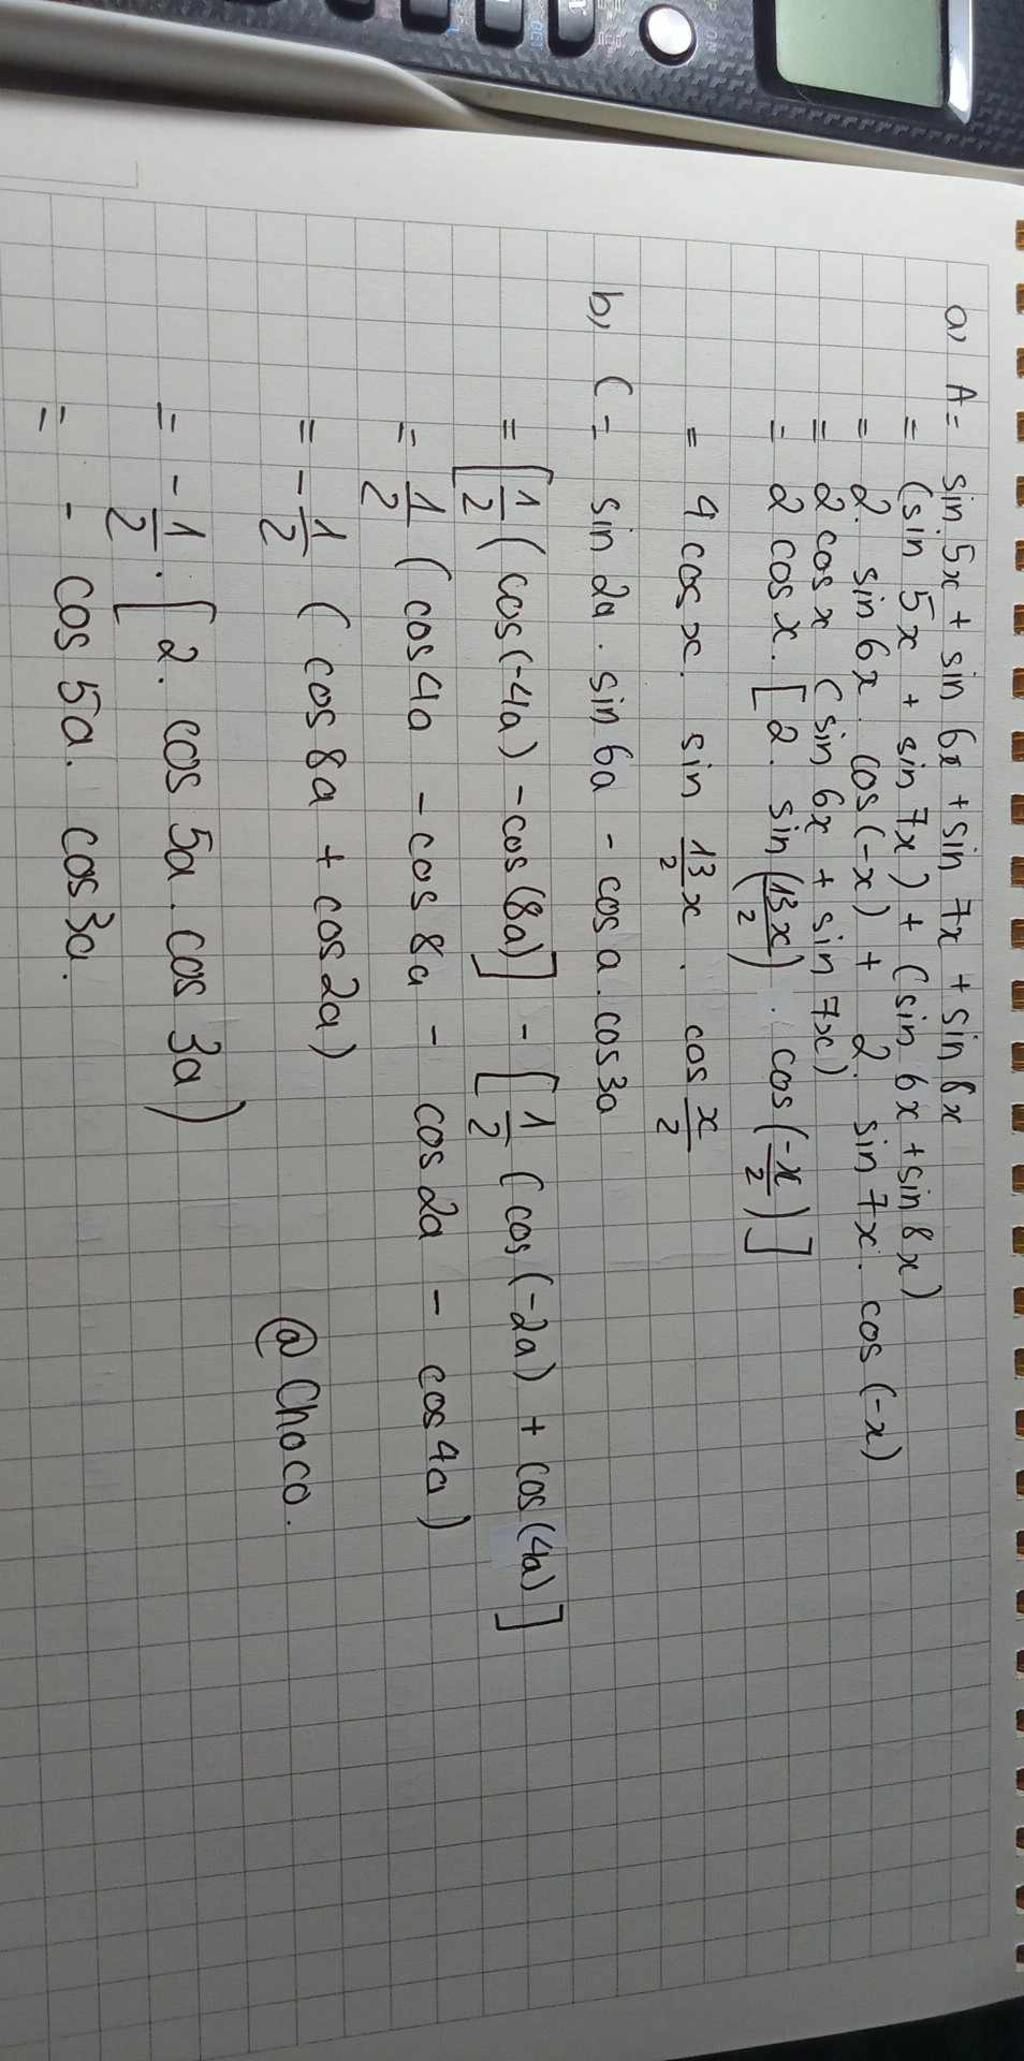 a) A = sin 5x + sin 6x + sin 7x + sin 8x
= (sin 5x + sin 7x) + (sin 6x + sin 8x)
= 2. sin 6x. cos(-x) + 2. sin 7x. cos(-x)
= 2 cos x (sin 6x + sin 7x)
= 2 cos x. [2. sin(13x/2). cos(-x/2)]
= 4 cos x. sin 13/2 x. cos x/2
b, C = sin 2a. sin 6a - cos a. cos 3a
= [1/2 (cos(-4a) - cos(8a)] - [1/2 (cos(-2a) + cos(4a)]
= 1/2 (cos 4a - cos 8a - cos 2a - cos 4a)
= -1/2 (cos 8a + cos 2a)
@Choco.
= -1/2. [2. cos 5a. cos 3a)
= - cos 5a. cos 3a.